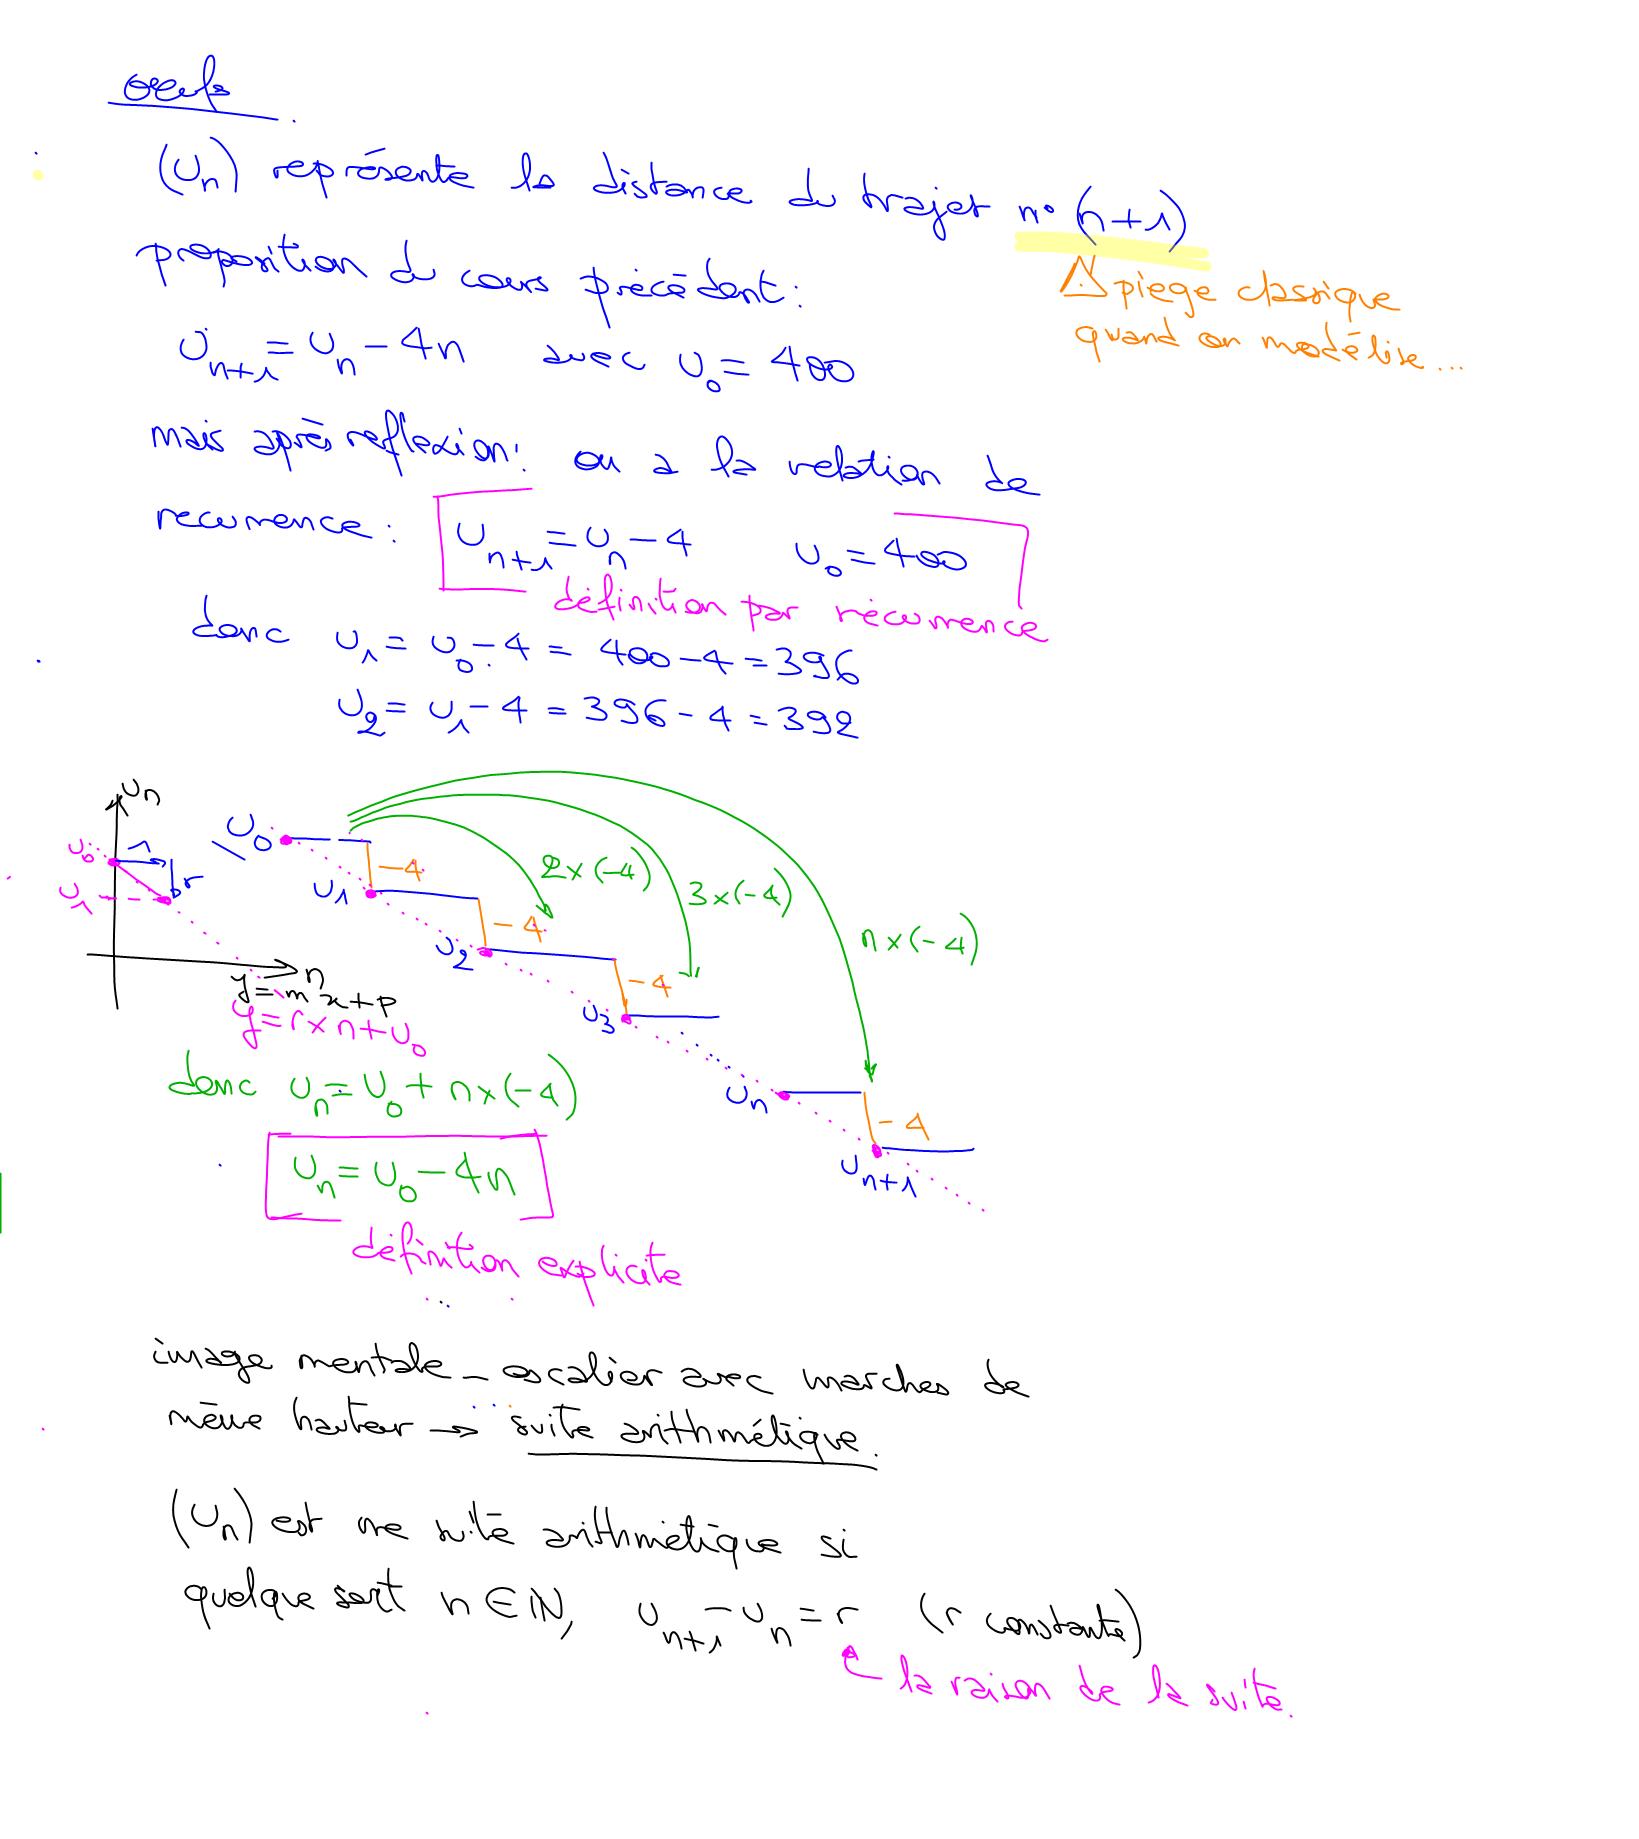 oeufs
(Un) représente la distance du trajet n° (n+1)
⚠ piège classique
quand on modélise...
proposition du cours précédent :
Un+1 = Un - 4n avec U0 = 400
mais après reflexion : on a la relation de
recurrence : Un+1 = Un - 4 U0 = 400
définition par récurrence
donc U1 = U0 - 4 = 400 - 4 = 396
U2 = U1 - 4 = 396 - 4 = 392
Un
U0
1
r
U1
n
y = mx + p
y = r × n + U0
U0
-4
2×(-4)
3×(-4)
n×(-4)
U1
-4
U2
-4
U3
Un
-4
Un+1
donc Un = U0 + n×(-4)
Un = U0 - 4n
définition explicite
image mentale - escalier avec marches de
même hauteur → suite arithmétique.
(Un) est une suite arithmétique si
quelque soit n ∈ ℕ, Un+1 - Un = r (r constante)
la raison de la suite.